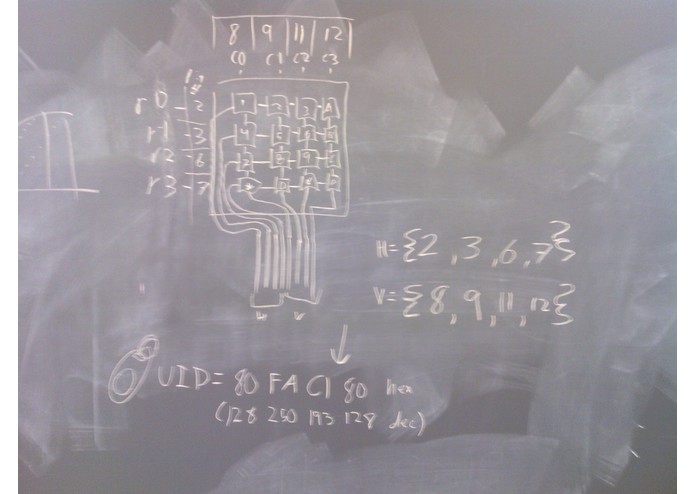 8 9 11 12
C0 C1 C2 C3
r0 2 1 2 3 A
r1 3 4 5
r2 6 7 9
r3 7
H={2,3,6,7}
V={8,9,11,12}
H V
UID= 80 FA C1 80 hex
(128 250 193 128 dec)